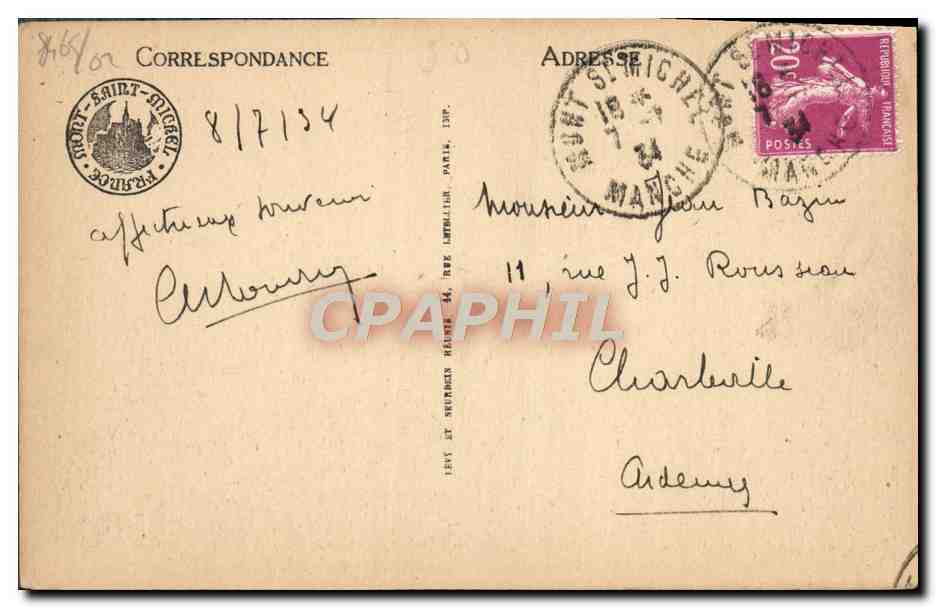 CORRESPONDANCE
ADRESSE
MONT-SAINT-MICHEL
FRANCE
8/7/34
affectueux souvenir
MONT ST MICHEL
18
7
34
MANCHE
20c
REPUBLIQUE FRANÇAISE
POSTES
Monsieur Jean Bazin
11, rue J.J. Rousseau
Charleville
Ardennes
LEVY ET NEURDEIN RÉUNIS 44, RUE LETELLIER, PARIS, IMP.
CPAPHIL